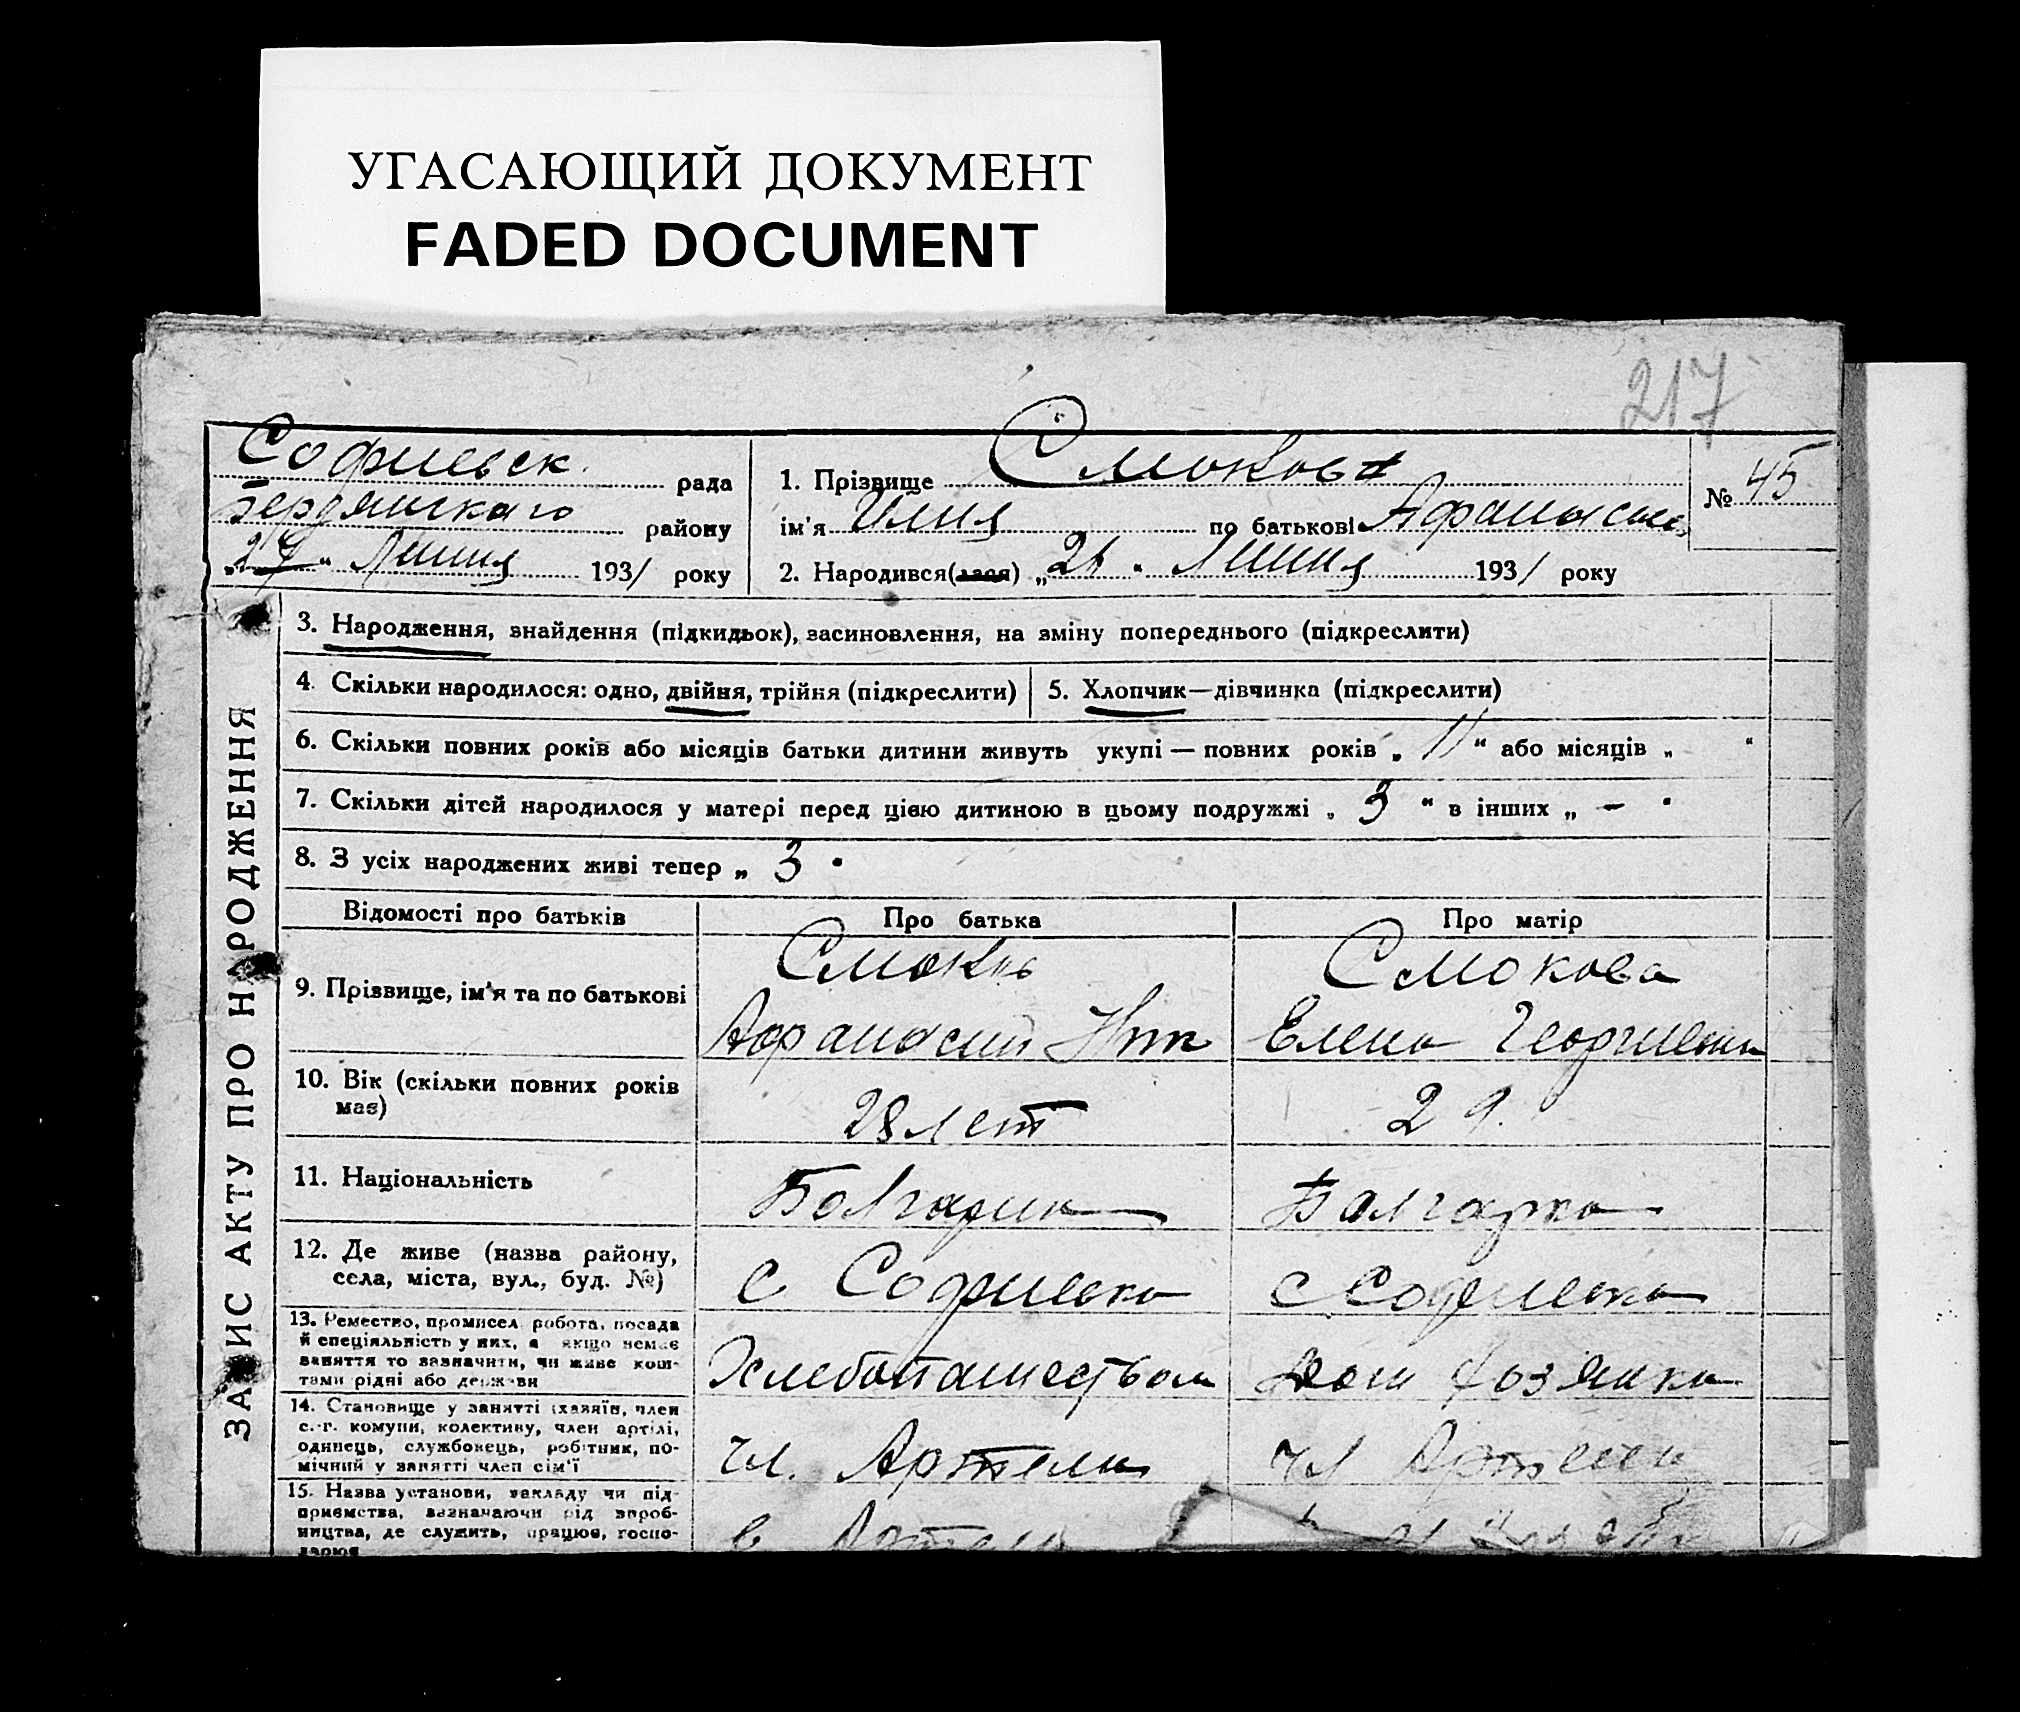 УГАСАЮЩИЙ ДОКУМЕНТ
FADED DOCUMENT
217
Софиевск. рада
Бердянскаго району
193/ року
1. Прізвище Смокова
ім'я Илия по батькові
2. Народився(лася) „2 193/ року
№ 45
ЗАПИС АКТУ ПРО НАРОДЖЕННЯ
3. Народження, знайдення (підкидьок), засиновлення, на зміну попереднього (підкреслити)
4. Скільки народилося: одно, двійня, трійня (підкреслити)
5. Хлопчик—дівчинка (підкреслити)
6. Скільки повних років або місяців батьки дитини живуть укупі — повних років „ 11 “ або місяців „ “
7. Скільки дітей народилося у матері перед цією дитиною в цьому подружжі „ 3 “ в інших „ – “
8. З усіх народжених живі тепер „ 3 “
Відомості про батьків
Про батька
Про матір
9. Прізвище, ім'я та по батькові
Смоков
Афанасий
Смокова
Елена Георгиевна
10. Вік (скільки повних років
має)
28 лет
29.
11. Національність
Болгарин
Болгарка
12. Де живе (назва району,
села, міста, вул., буд. №)
с Софиевка
с Софиевка
13. Ремество, промисел, робота, посада
й спеціяльність у них, а якщо немає
заняття то зазначити, чи живе кош-
тами рідні або держави
Хлебопашеством
Дом хозяйка
14. Становище у занятті (хазяїн, член
с.-г. комуни, колективу, член артілі,
одинець, службовець, робітник, по-
мічний у занятті член сім'ї
чл. Артели
чл Артели
15. Назва установи, закладу чи під-
приємства, зазначаючи рід вироб-
ництва, де служить, працює, госпо-
дарює
в Артели